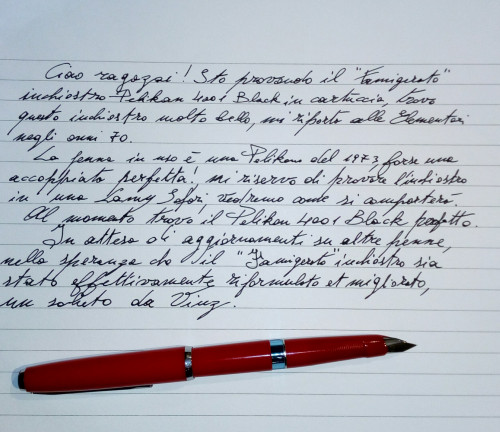 Ciao ragazzi! Sto provando il "Famigerato"
inchiostro Pelikan 4001 Black in cartuccia, trovo
questo inchiostro molto bello, mi riporta alle Elementari
negli anni 70.
La penna in uso è una Pelikan del 1973 forse una
accoppiata perfetta! mi riservo di provare l'inchiostro
in una Lamy Safari, vedremo come si comporterà.
Al momento trovo il Pelikan 4001 Black perfetto.
In attesa di aggiornamenti su altre penne,
nella speranza che il "Famigerato" inchiostro sia
stato effettivamente riformulato et migliorato,
un saluto da Vinz.